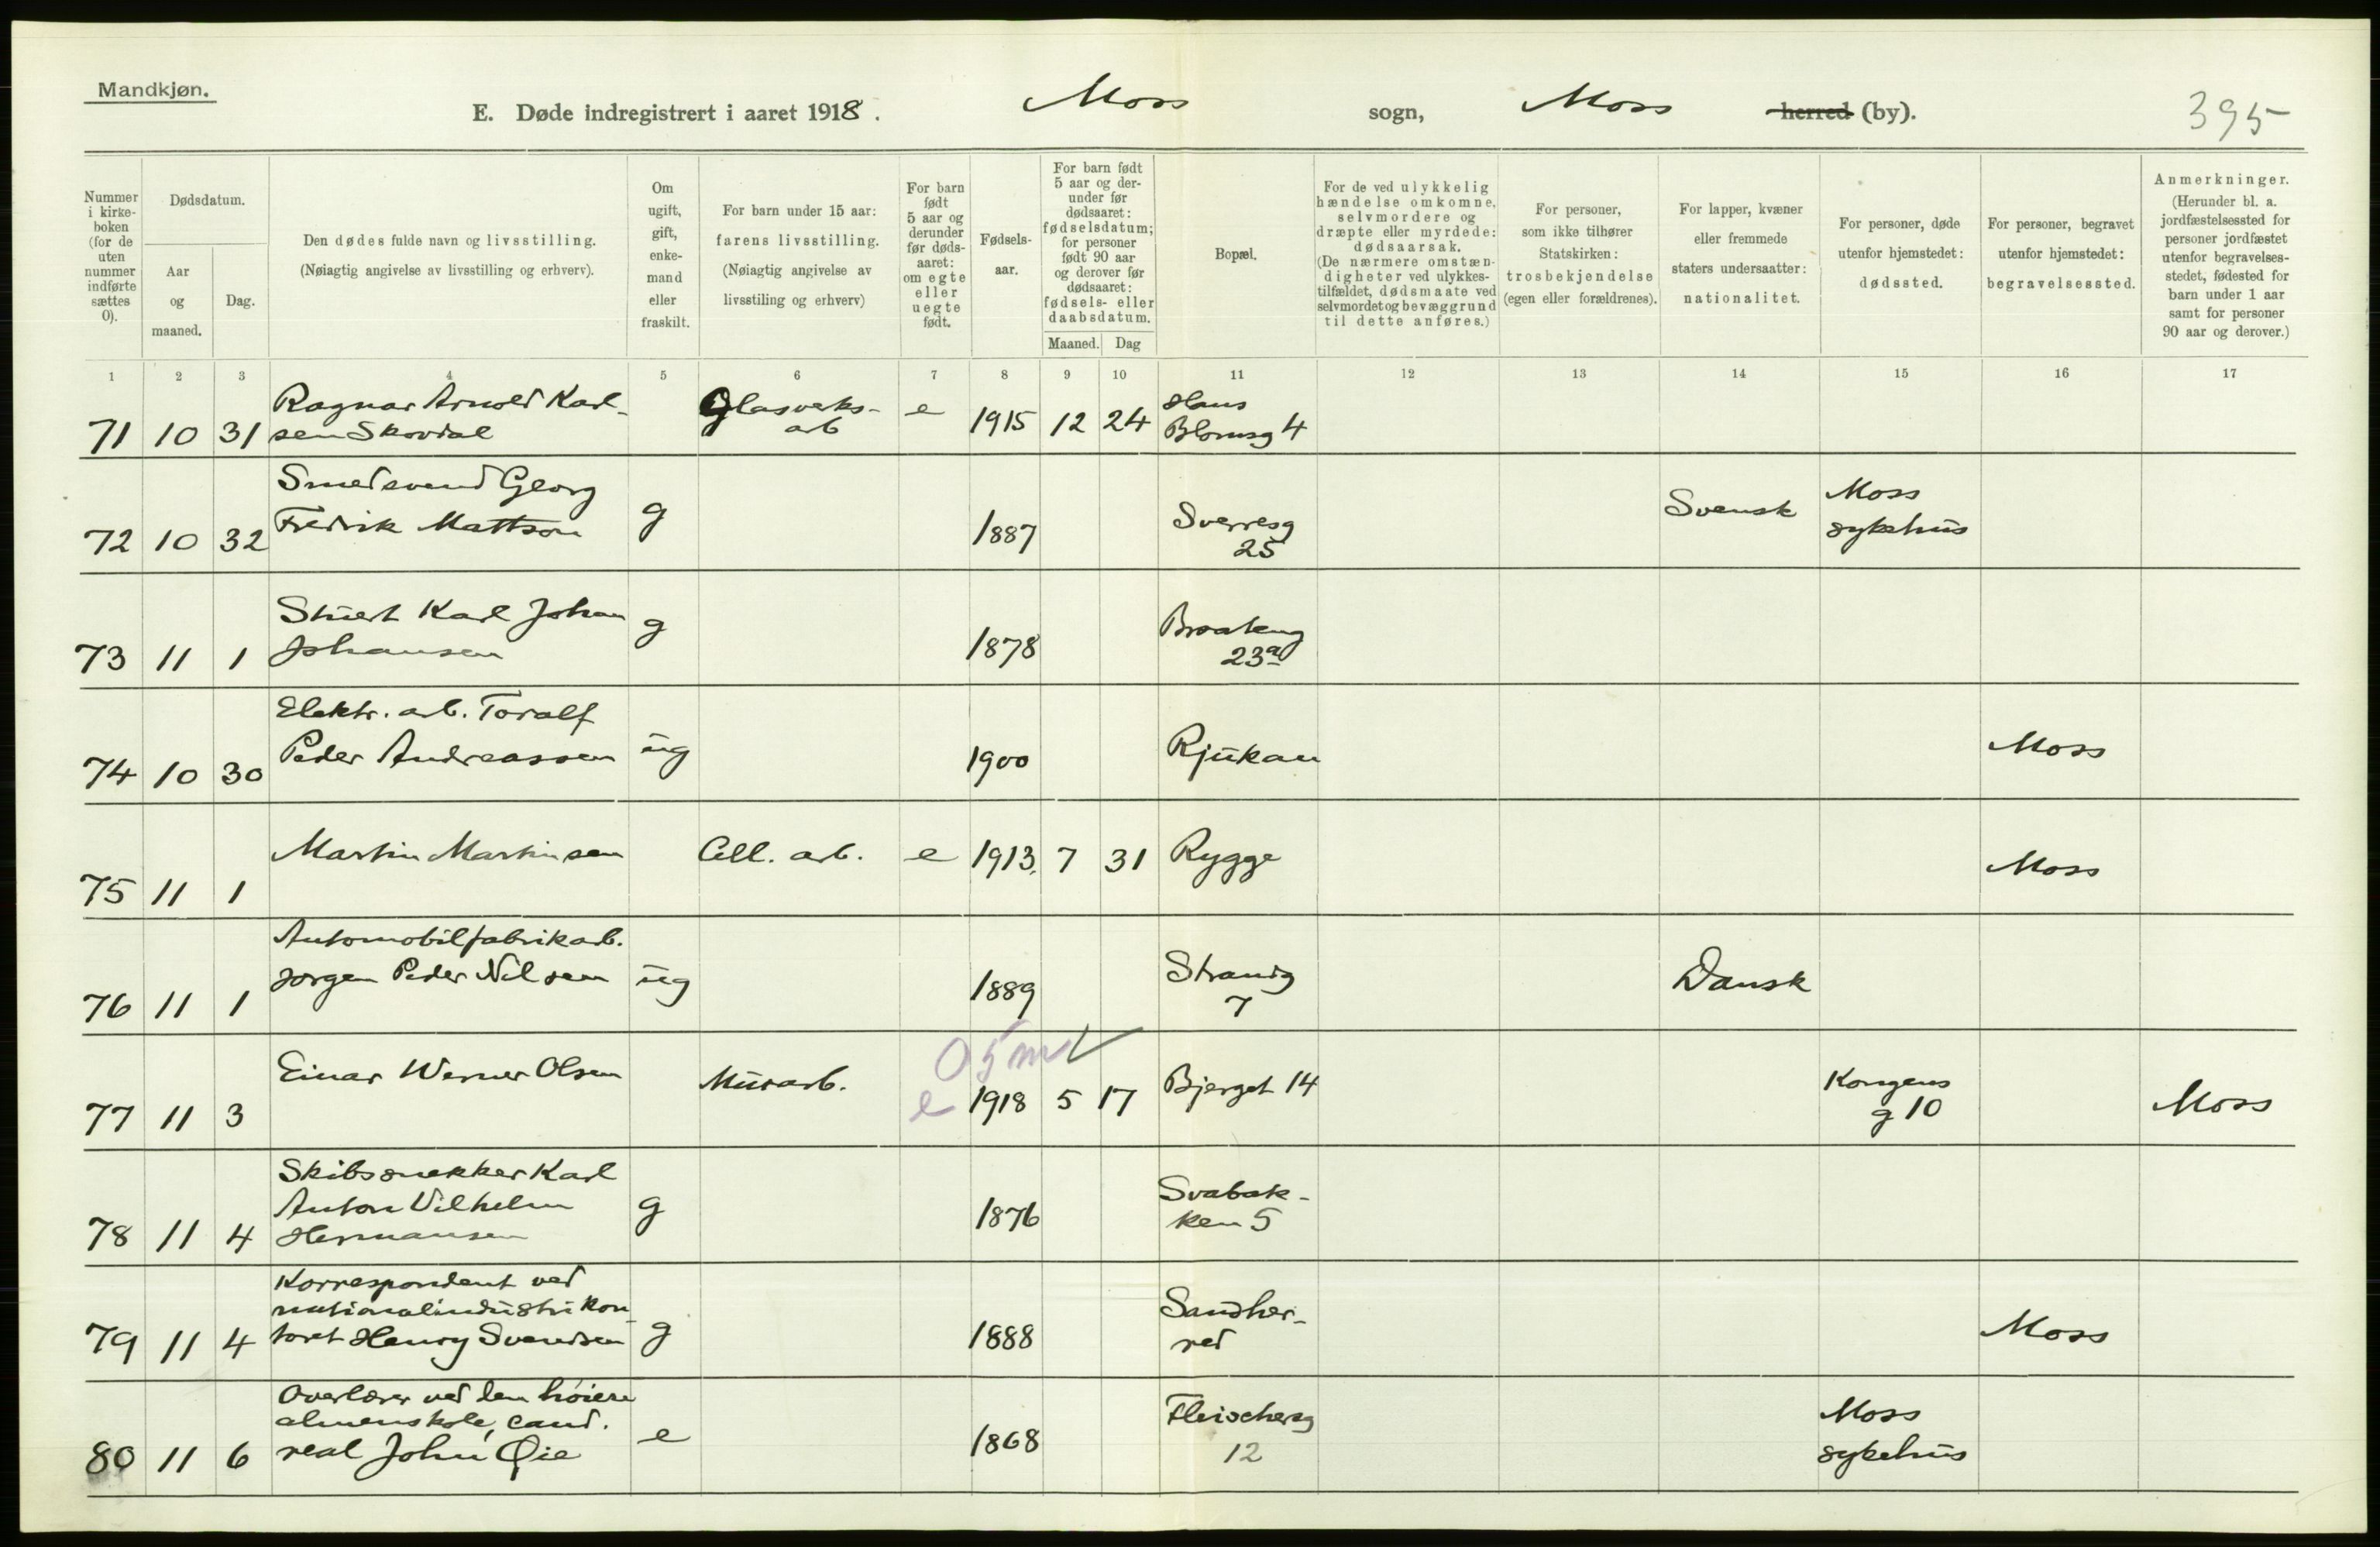 Mandkjøn.
E. Døde indregistrert i aaret 1918. Moss sogn, Moss herred (by). 395
Nummer i kirke-boken (for de uten nummer indførte sættes 0).
Dødsdatum.
Aar og maaned.
Dag.
Den dødes fulde navn og livsstilling.
(Nøiagtig angivelse av livsstilling og erhverv).
Om ugift, gift, enke-mand eller fraskilt.
For barn under 15 aar: farens livsstilling.
(Nøiagtig angivelse av livsstiling og erhverv)
For barn født 5 aar og derunder før døds-aaret: om egte eller uegte født.
Fødsels-aar.
For barn født 5 aar og der-under før dødsaaret: fødselsdatum; for personer født 90 aar og derover før dødsaaret: fødsels- eller daabsdatum.
Maaned. Dag
Bopæl.
For de ved ulykkelig hændelse omkomne, selvmordere og dræpte eller myrdede: dødsaarsak.
(De nærmere omstæn-digheter ved ulykkes-tilfældet, dødsmaate ved selvmordet og bevæggrund til dette anføres.)
For personer, som ikke tilhører Statskirken: trosbekjendelse (egen eller forældrenes).
For lapper, kvæner eller fremmede staters undersaatter: nationalitet.
For personer, døde utenfor hjemstedet: dødssted.
For personer, begravet utenfor hjemstedet: begravelsessted.
Anmerkninger.
(Herunder bl. a. jordfæstelsessted for personer jordfæstet utenfor begravelses-stedet, fødested for barn under 1 aar samt for personer 90 aar og derover.)
1 2 3 4 5 6 7 8 9 10 11 12 13 14 15 16 17
71 10 31 Ragnar Arnold Karl-
sen Skovdal Glasverks-
arb e 1915 12 24 Hans
Blomsg 4
72 10 32 Smedsvend Georg
Fredrik Mattson g 1887 Sverresg
25 Svensk Moss
sykehus
73 11 1 Stuert Karl Johan
Johansen g 1878 Braateng
23a
74 10 30 Elektr. arb. Toralf
Peder Andreassen ug 1900 Rjukan Moss
75 11 1 Martin Martinsen Cell. arb. e 1913. 7 31 Rygge Moss
76 11 1 Automobilfabrikarb.
Jørgen Peder Nilsen ug 1889 Strandg
7 Dansk
0 5 m
77 11 3 Einar Werner Olsen Murarb. e 1918 5 17 Bjerget 14 Kongens
g 10 Moss
78 11 4 Skibssnekker Karl
Anton Vilhelm
Hermansen g 1876 Svabak-
ken 5
79 11 4 Korrespondent ved
nationalindustrikon-
toret Henry Svendsen g 1888 Sandher-
red Moss
80 11 6 Overlærer ved den høiere
almenskole, cand.
real John Øie e 1868 Fleischersg
12 Moss
sykehus